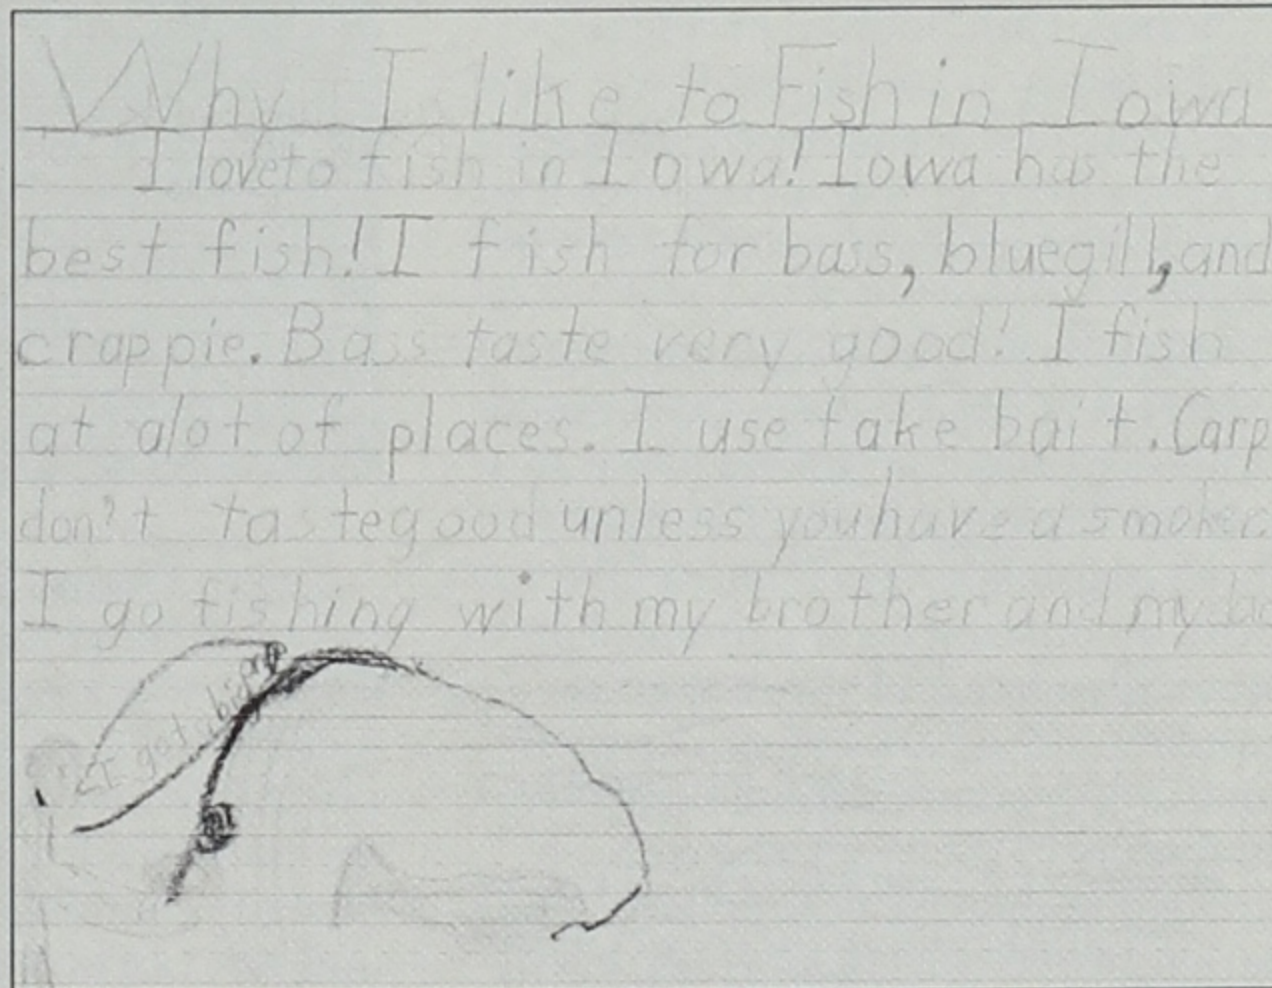 Why I like to Fish in Iowa
I love to fish in Iowa! Iowa has the
best fish! I fish for bass, bluegill, and
crappie. Bass taste very good! I fish
at alot of places. I use fake bait. Carp
don't taste good unless you have a smoker.
I go fishing with my brother and my
I got big